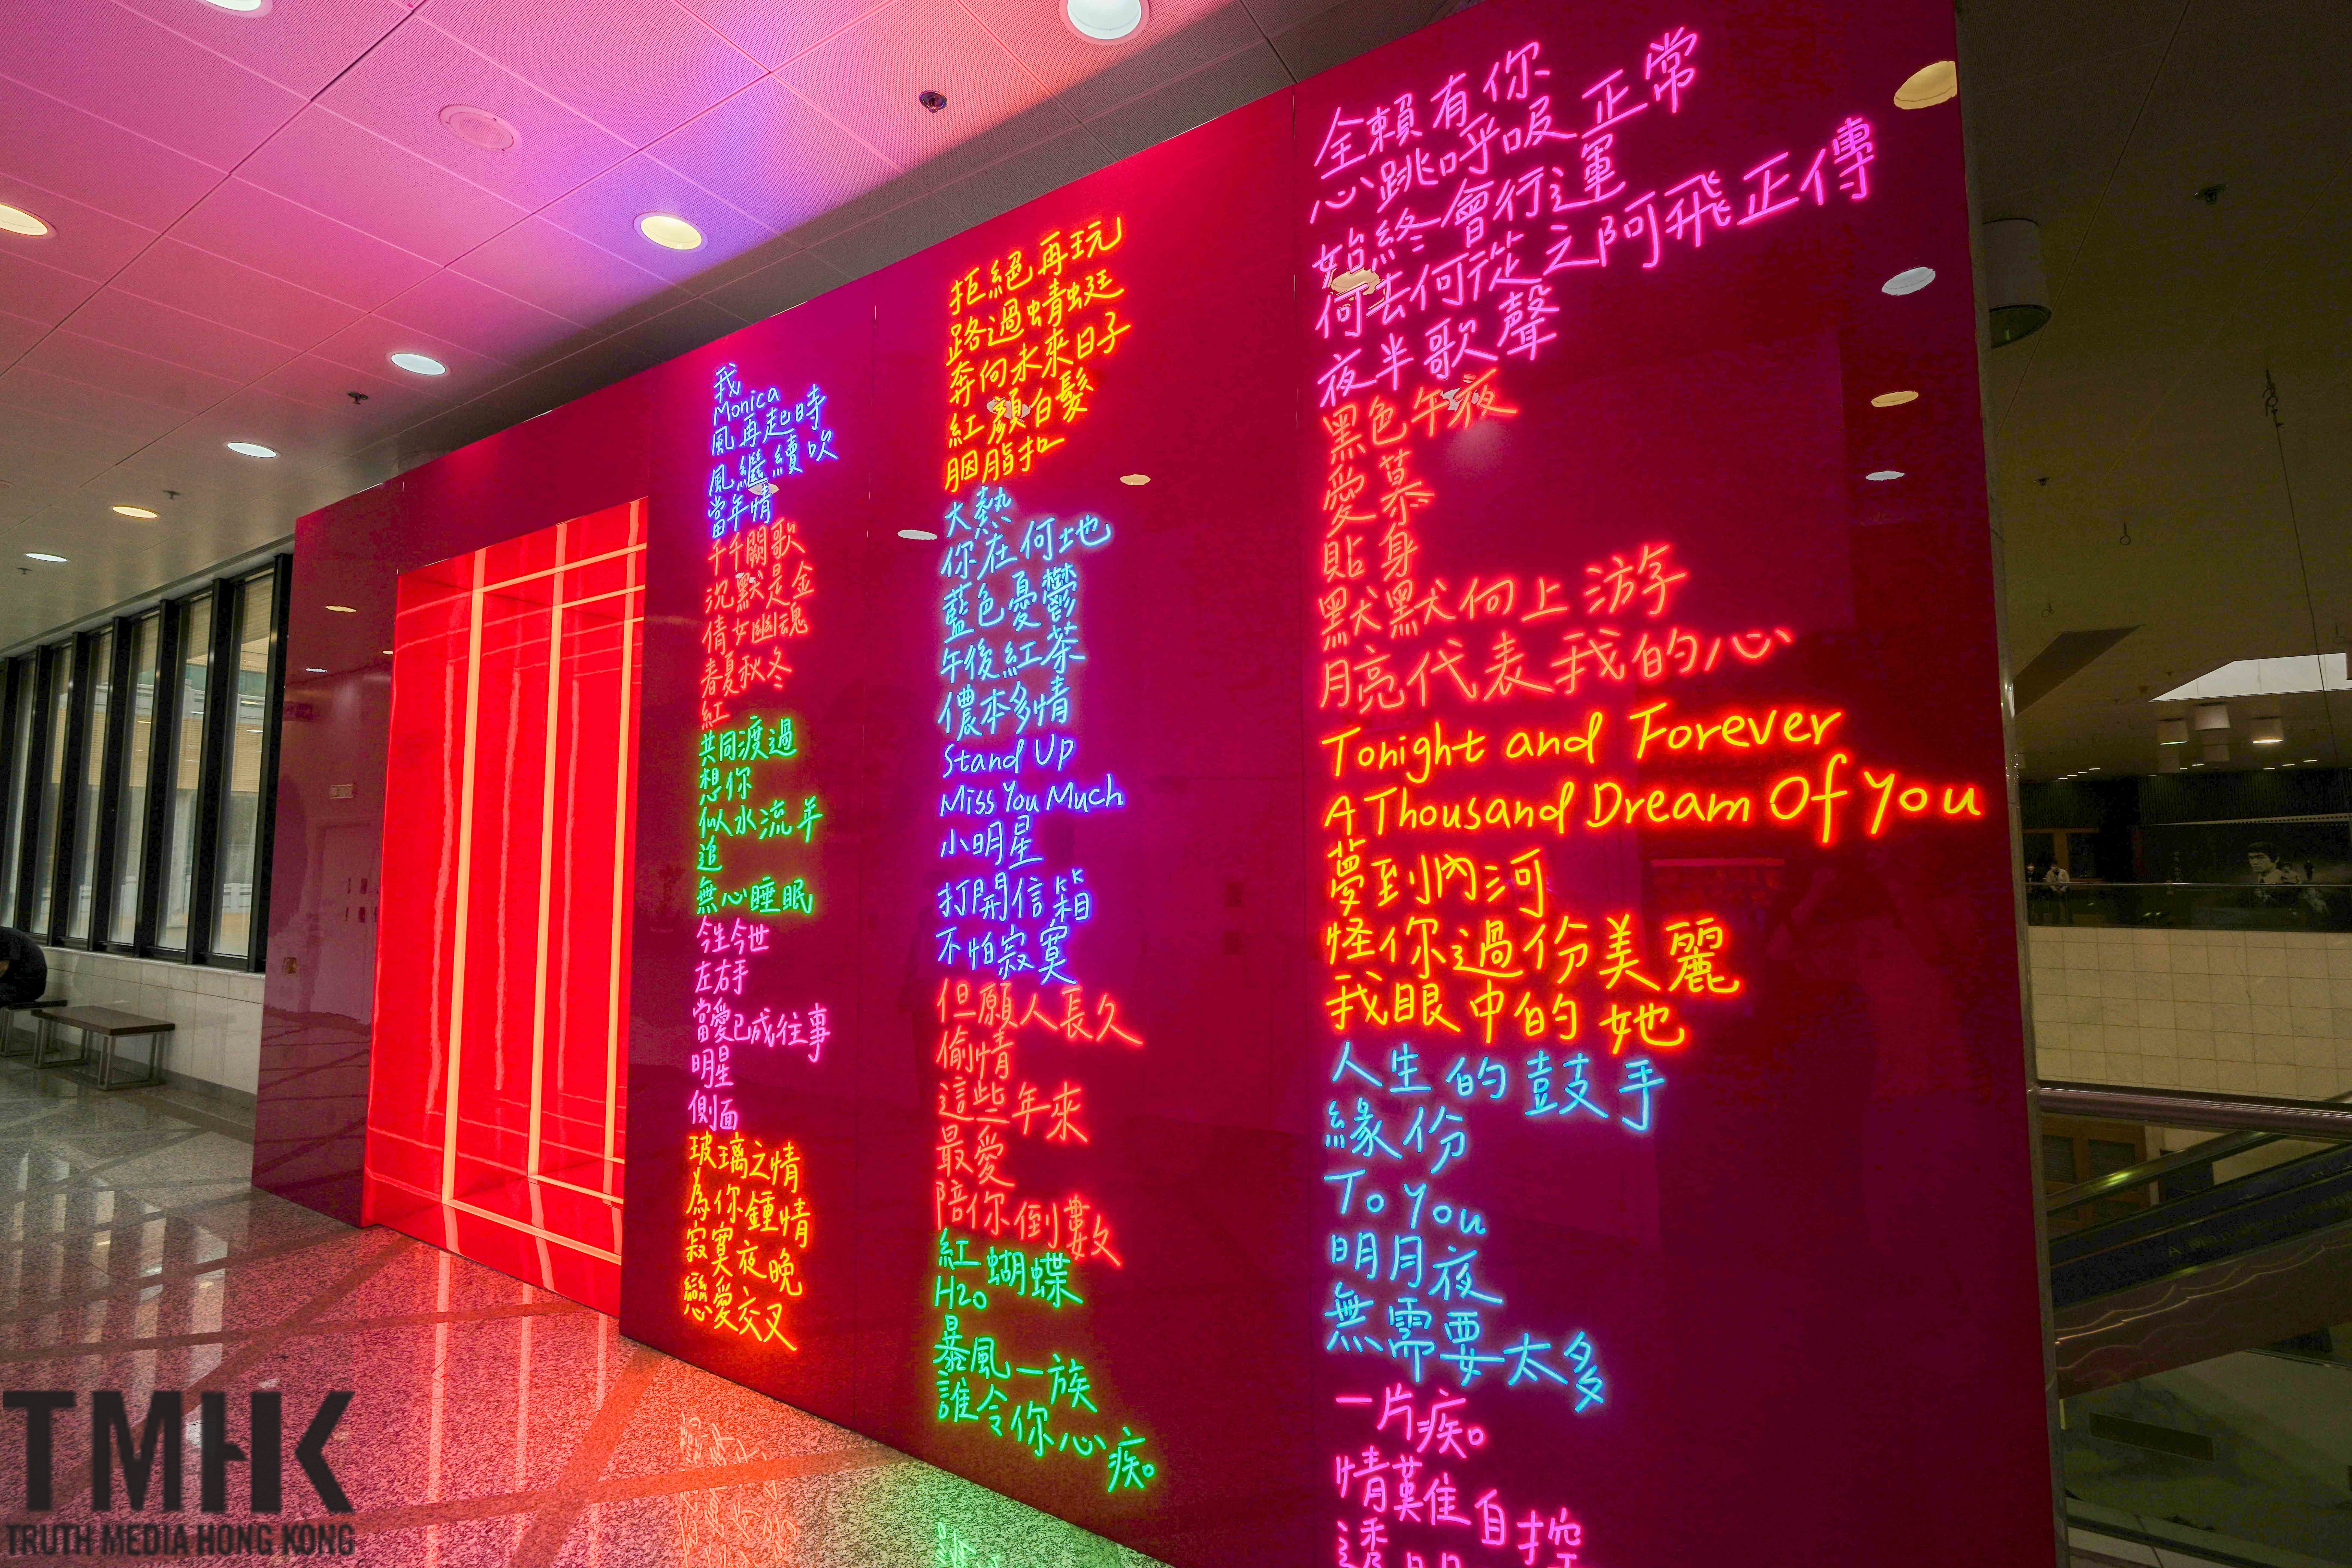 我
Monica
風再起時
風繼續吹
當年情
千千闕歌
沉默是金
倩女幽魂
春夏秋冬
紅
共同渡過
想你
似水流年
追
無心睡眠
今生今世
左右手
當愛已成往事
明星
側面
玻璃之情
為你鍾情
寂寞夜晚
戀愛交叉
拒絕再玩
路過蜻蜓
奔向未來日子
紅顏白髮
胭脂扣
大熱
你在何地
藍色憂鬱
午後紅茶
儂本多情
Stand Up
Miss You Much
小明星
打開信箱
不怕寂寞
但願人長久
偷情
這些年來
最愛
陪你倒數
紅蝴蝶
H2O
暴風一族
誰令你心痴
全賴有你
心跳呼吸正常
始終會行運
何去何從之阿飛正傳
夜半歌聲
黑色午夜
愛慕
貼身
默默向上游
月亮代表我的心
Tonight and Forever
A Thousand Dream Of You
夢到內河
怪你過份美麗
我眼中的她
人生的鼓手
緣份
To You
明月夜
無需要太多
一片痴
情難自控
TMHK
TRUTH MEDIA HONG KONG